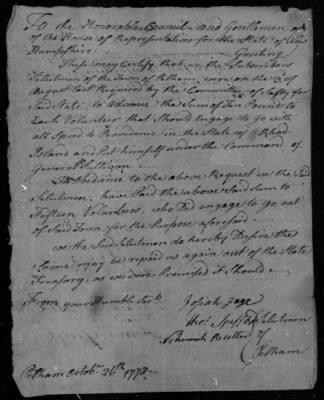 To the Honorable Council and Gentlemen of
of the House of Representation for the State of New
Hampshire Greeting
These may Certify that we the Subscribers
Selectmen of the Town of Pelham, were on the of
August last Requierd by the Committee of Safty for
Said State, to advance the Sum of Ten Pound to
Each Volunteer that Should Engage to go with
all Speed to Providence in the State of Rhod
Island and Put himself under the Command of
General Sullivan.
In Obedience to the above Request we the Said
Selectmen, have Paid the above Said Sum to
Fifteen Volunteers, who Did engage to go out
of Said Town for the Purpose aforesaid
we the Said Selectmen do hereby Desire the
Same may be repaid us again out of the State
Treasury, as we were Promised it Should
From your Humble Serts
Josiah Gage
Selectmen
of
Pelham
Pelham Octobr 26th 1778